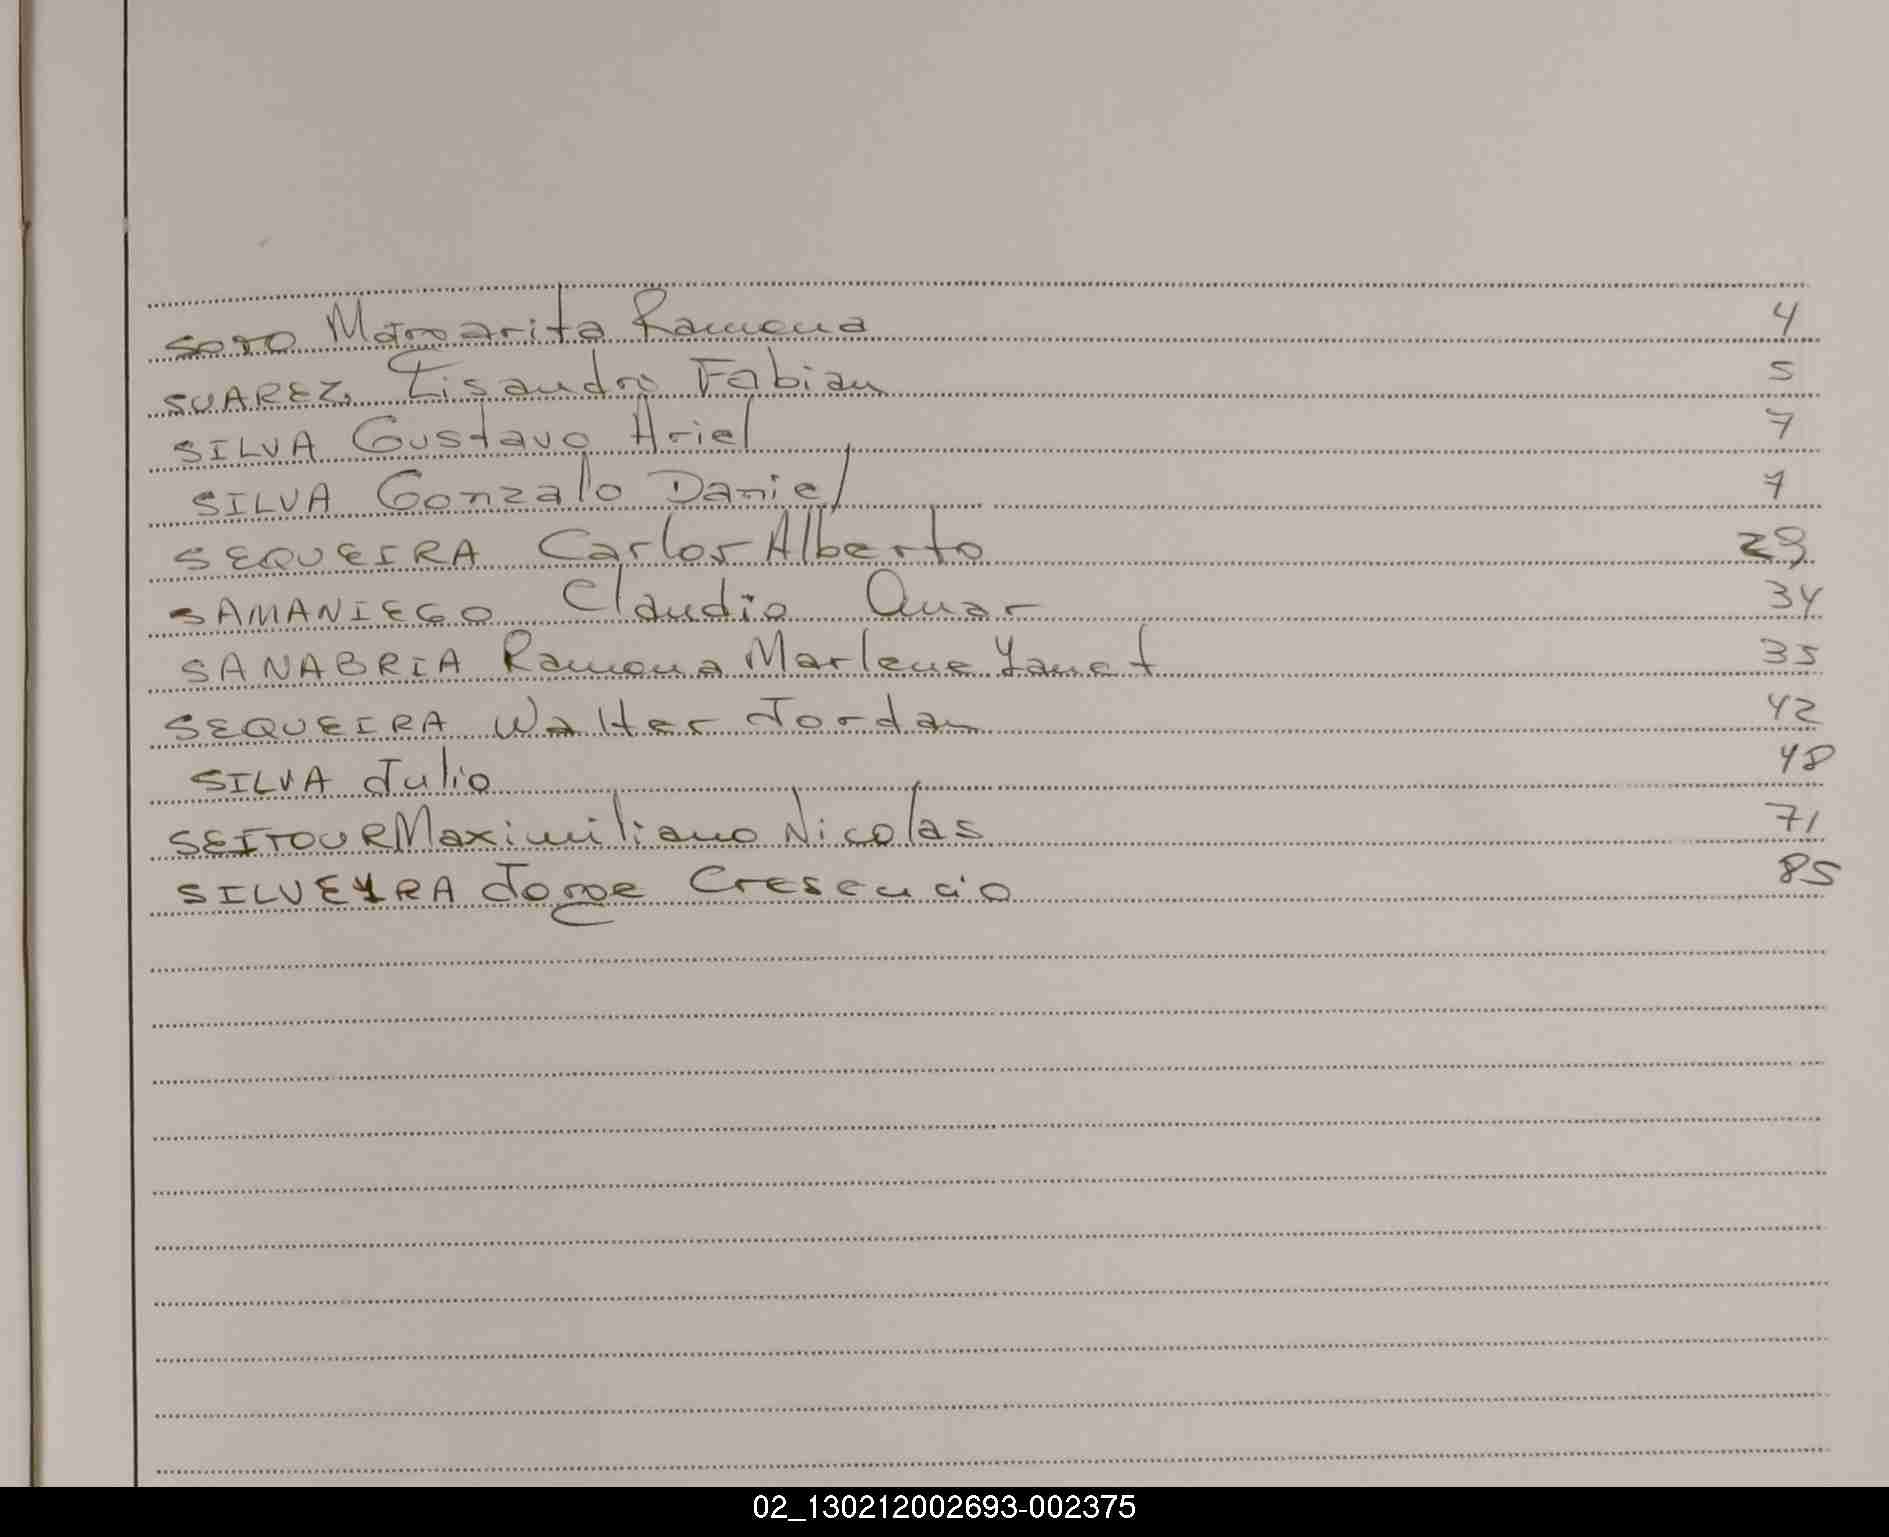 SOTO Margarita Ramona 4
SUAREZ, Lisandro Fabian 5
SILVA Gustavo Ariel 7
SILVA Gonzalo Daniel 7
SEQUEIRA Carlos Alberto 29
SAMANIEGO Claudio Omar 34
SANABRIA Ramona Marlene Yanet 35
SEQUEIRA Walter Jordan 42
SILVA Julio 48
SEITOUR Maximiliano Nicolas 71
SILVEYRA Jorge Crescencio 85
02_130212002693-002375